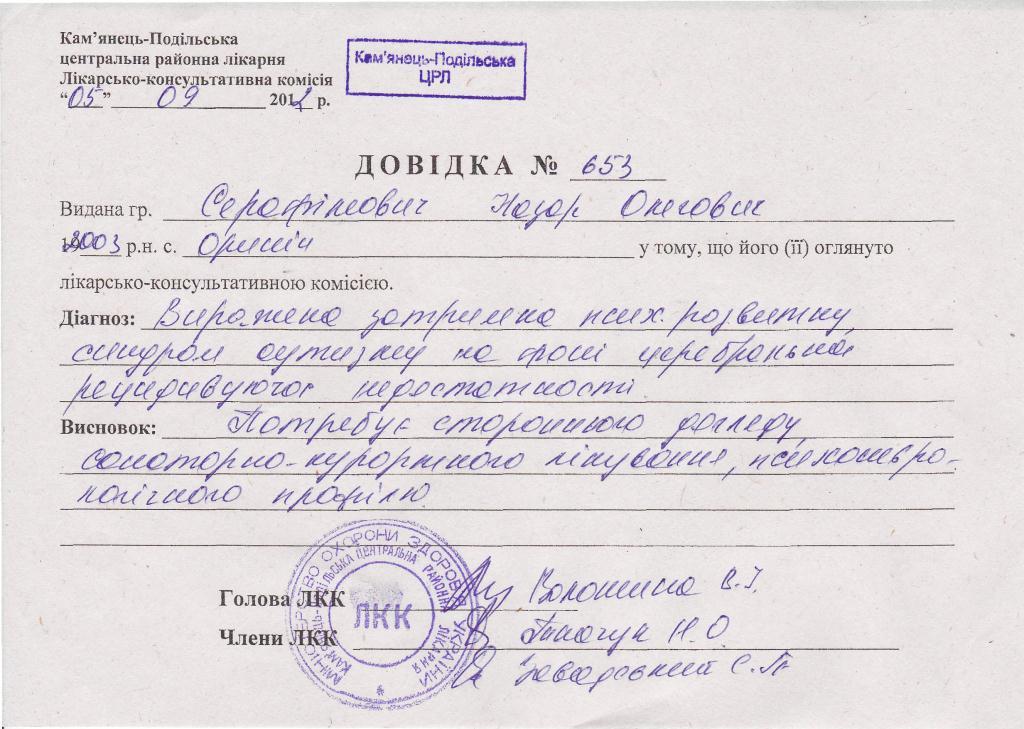 Кам'янець-Подільська
центральна районна лікарня
Лікарсько-консультативна комісія
“05” 09 2012 р.
Кам'янець-Подільська
ЦРЛ
ДОВІДКА № 653
Видана гр. Серафімович Назар Олегович
2003 р.н. с. Оринін у тому, що його (її) оглянуто
лікарсько-консультативною комісією.
Діагноз: Виражена затримка псих. розвитку,
синдром аутизму на фоні церебральної
резидуючої недостатності.
Висновок: Потребує стороннього догляду,
санаторно-курортного лікування, психоневро-
логічного профілю
Голова ЛКК Волошина В.І.
Члени ЛКК Ткачук Н.О
Завадський С.П.
МІНІСТЕРСТВО ОХОРОНИ ЗДОРОВ'Я УКРАЇНИ
КАМ'ЯНЕЦЬ-ПОДІЛЬСЬКА ЦЕНТРАЛЬНА РАЙОННА ЛІКАРНЯ
ЛКК